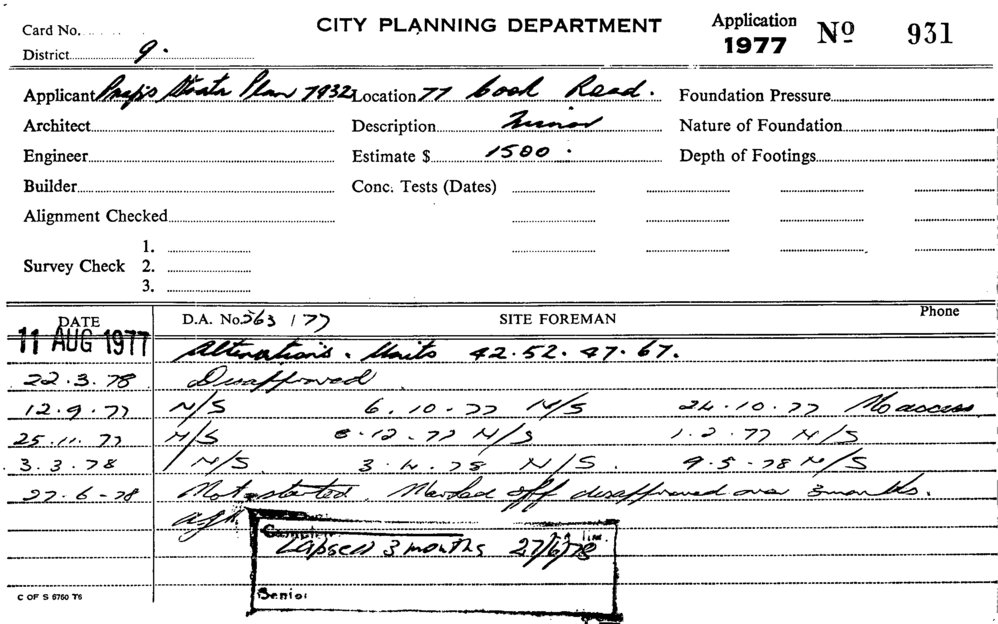 Card No. CITY PLANNING DEPARTMENT Application 1977 Nº 931
District 9.
Applicant Prop's Strata Plan 7932 Location 77 Cook Road. Foundation Pressure
Architect Description Minor Nature of Foundation
Engineer Estimate $ 1500. Depth of Footings
Builder Conc. Tests (Dates)
Alignment Checked
1.
Survey Check 2.
3.
DATE D.A. No. 563 / 77 SITE FOREMAN Phone
11 AUG 1977 Alterations. Units 42.52.47.67.
22.3.78 Disapproved
12.9.77 N/S 6.10.77 N/S 24.10.77 No access
25.11.77 N/S 8.12.77 N/S 1.2.77 N/S
3.3.78 N/S. 3.4.78 N/S. 9.5.78 N/S
27.6.78 Not started. Marked off disapproved over 3 months.
ago.
Lapsed 3 months 27/6/78
Senior
C OF S 6760 T6